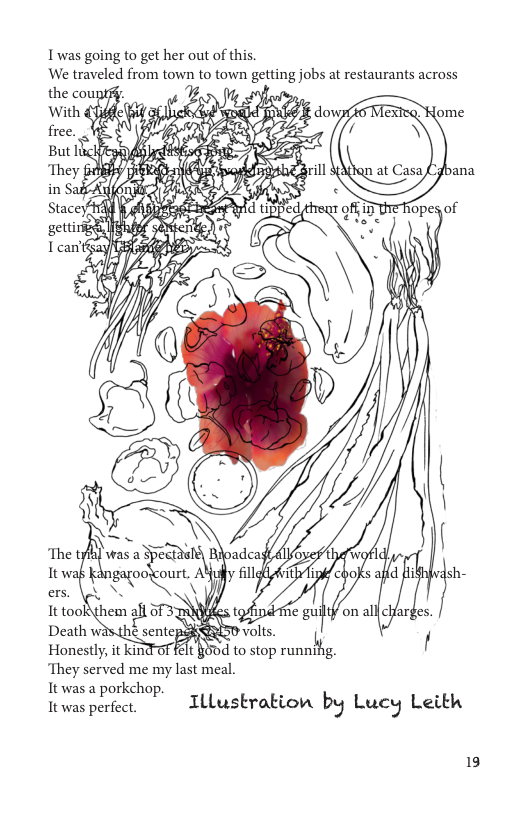 I was going to get her out of this.
We traveled from town to town getting jobs at restaurants across
the country.
With a little bit of luck, we would make it down to Mexico. Home
free.
But luck can only last so long.
They finally picked me up, working the grill station at Casa Cabana
in San Antonio.
Stacey had a change of heart and tipped them off in the hopes of
getting a lighter sentence.
I can't say I blame her.
The trial was a spectacle. Broadcast all over the world.
It was kangaroo court. A jury filled with line cooks and dishwash-
ers.
It took them all of 3 minutes to find me guilty on all charges.
Death was the sentence. 2,450 volts.
Honestly, it kind of felt good to stop running.
They served me my last meal.
It was a porkchop.
It was perfect.
Illustration by Lucy Leith